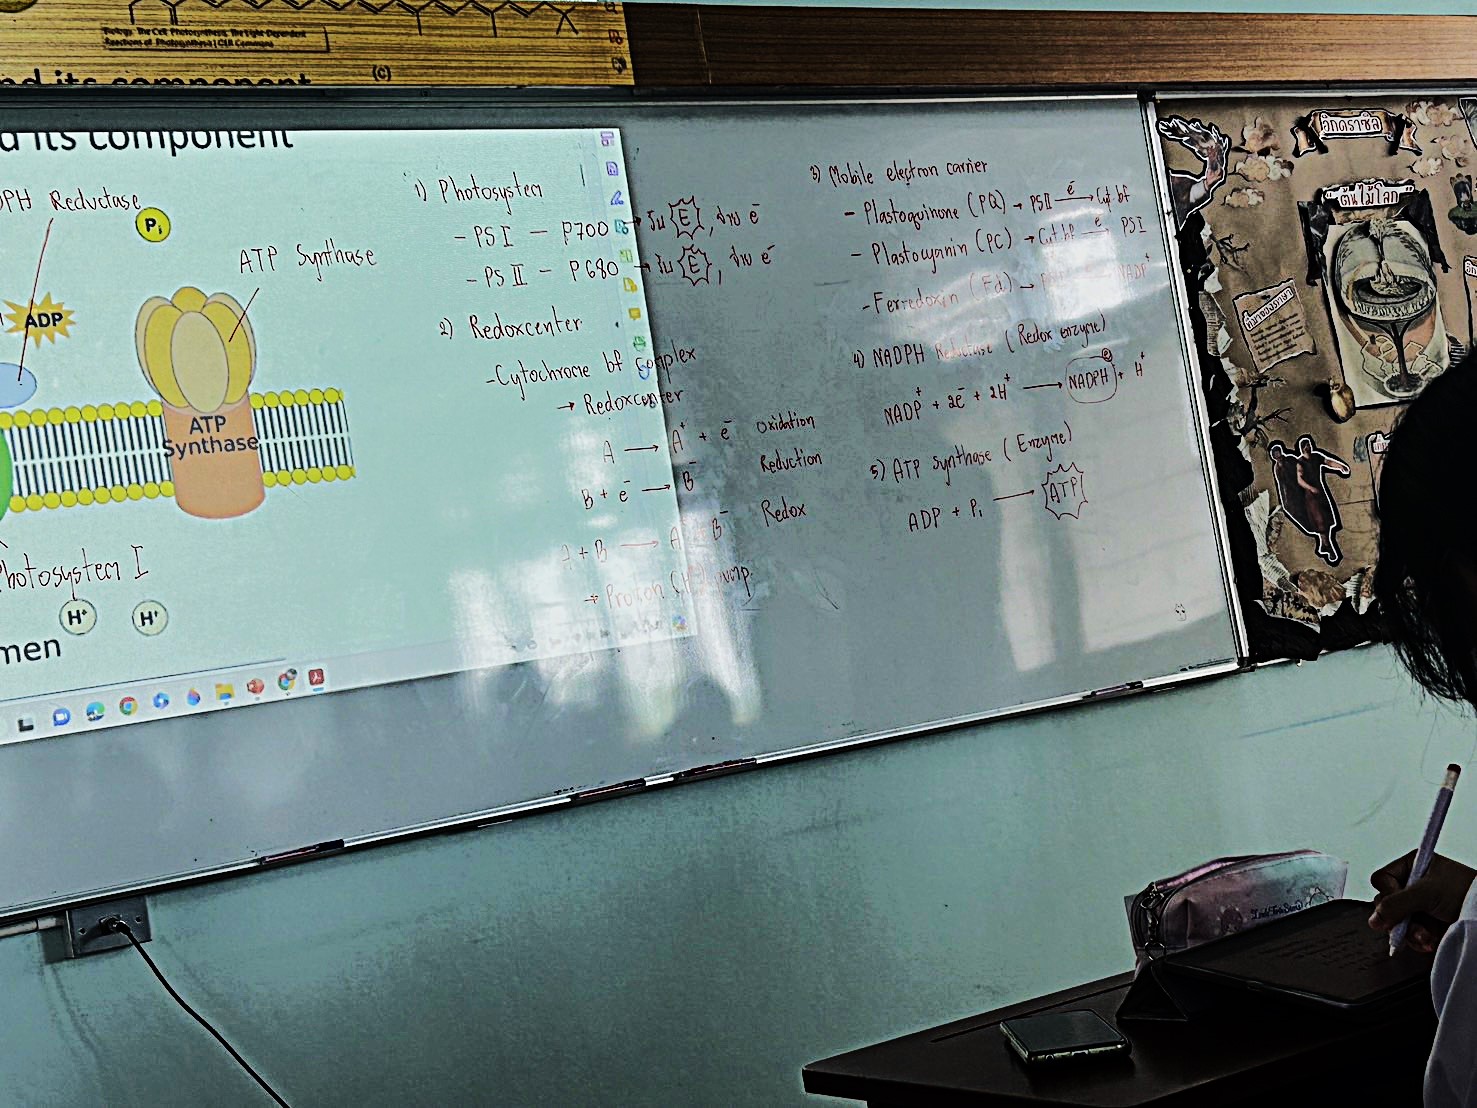 Biology: The Cell, Photosynthesis, The Light-Dependent
Reactions of Photosynthesis | OER Commons
(c)
nd its component
d its component
DPH Reductase
Pi
ATP Synthase
ADP
ATP
Synthase
Photosystem I
H⁺ H⁺
men
1) Photosystem
- PS I - P700 → รับ E, จ่าย e⁻
- PS II - P680 → รับ E, จ่าย e⁻
2) Redoxcenter
- Cytochrome bf complex
→ Redoxcenter
A → A⁺ + e⁻ Oxidation
B + e⁻ → B⁻ Reduction
A + B → A⁺ + B⁻ Redox
→ Proton (H⁺) pump
3) Mobile electron carrier
- Plastoquinone (PQ) → PS II e⁻→ Cyt bf
- Plastocyanin (PC) → Cyt bf e⁻→ PS I
- Ferredoxin (Fd) → NADP⁺
4) NADPH Reductase (Redox enzyme)
NADP⁺ + 2e⁻ + 2H⁺ → NADPH + H⁺
5) ATP Synthase (Enzyme)
ADP + Pi → ATP
อิกดราซิล
"ต้นไม้โลก"